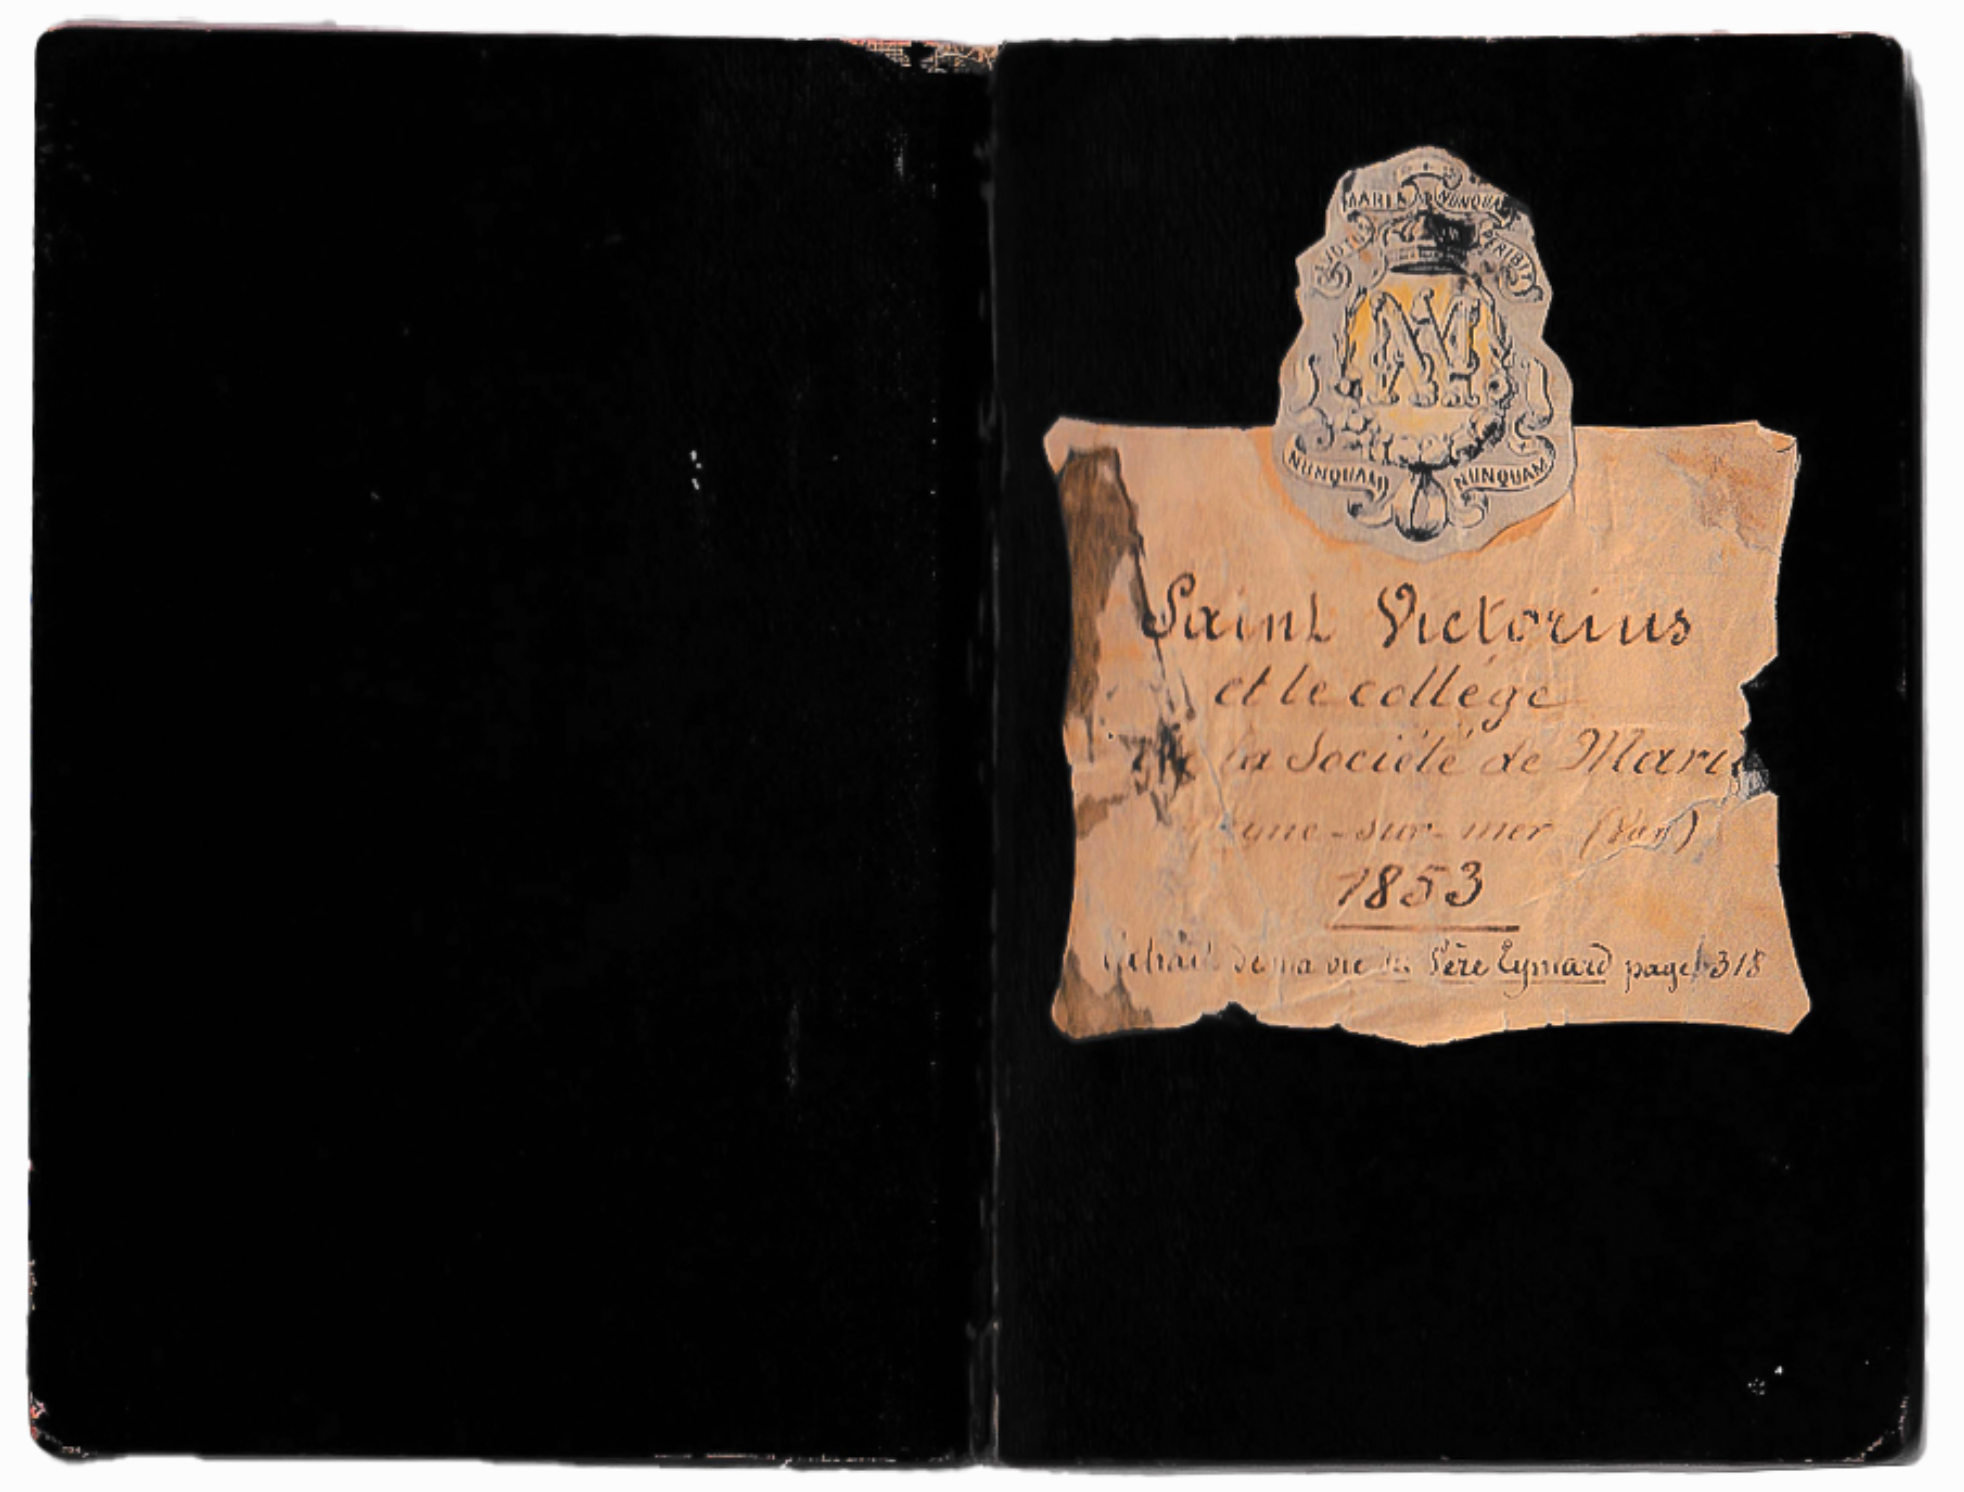 MARIÆ NUNQUAM
PERIBIT
NUNQUAM NUNQUAM
Saint Victorius
et le collège
la Société de Mari
yne-sur-mer (Var)
1853
Extrait de la vie du Père Eymard page 318